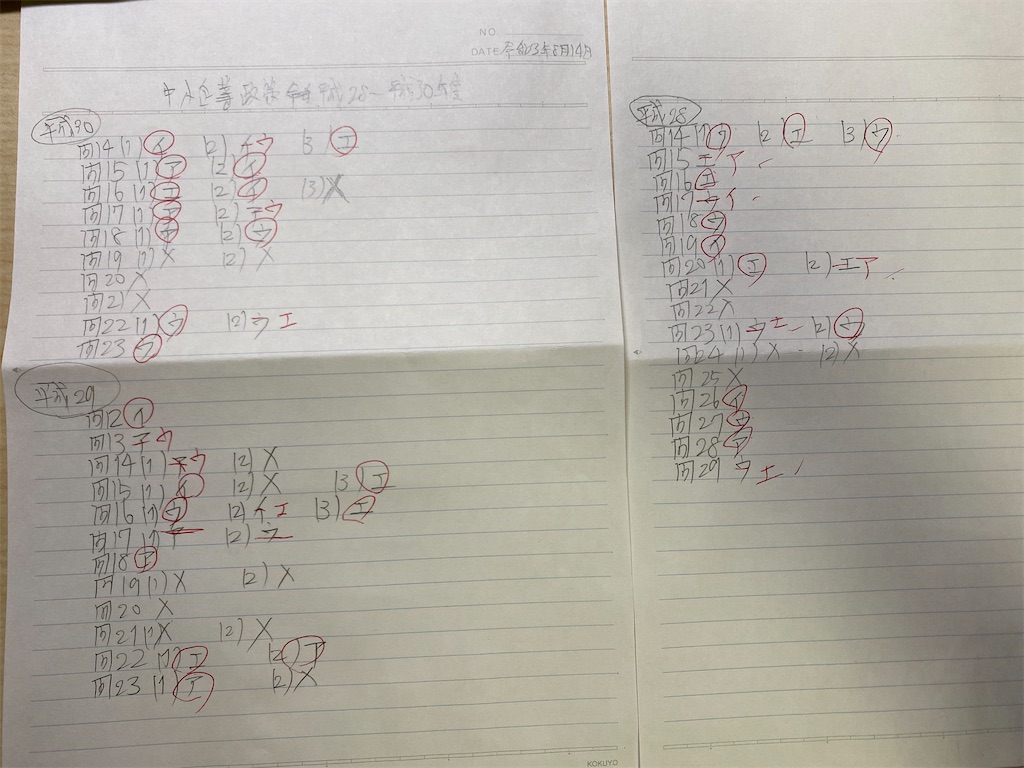 NO.
DATE 令和3年8月14日
中小企業政策 平成28～平成30年度
平成30
問14 (1) イ (2) エ ウ (3) エ
問15 (1) エ (2) イ
問16 (1) エ (2) イ (3) X
問17 (1) (2) エ ウ
問18 (1) (2) ウ
問19 (1) X (2) X
問20 X
問21 X
問22 (1) ウ (2) ウ エ
問23 ウ
平成29
問2 イ
問13 エ ウ
問14 (1) ウ (2) X
問15 (1) (2) X (3)
問16 (1) ウ (2) イ エ (3) エ
問17 (1) (2)
問18
問19 (1) X (2) X
問20 X
問21 (1) X (2) X
問22 (1) エ (2)
問23 (1) エ (2) X
KOKUYO
平成28
問14 (1) ウ (2) エ (3) ウ
問15 エ ア
問16 エ
問17 イ
問18 ウ
問19 イ
問20 (1) エ (2) エ ア
問21 X
問22 X
問23 (1) ウ エ (2) ウ
問24 (1) X (2) X
問25 X
問26 イ
問27 ウ
問28
問29 ウ エ